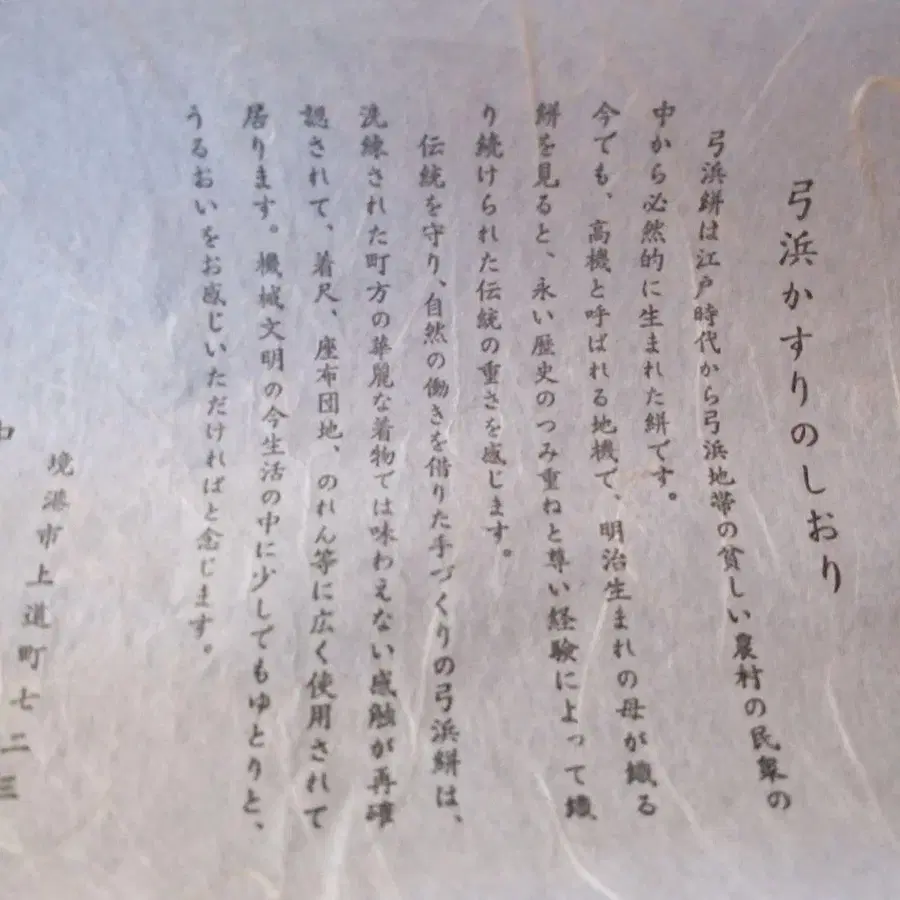 弓浜かすりのしおり
弓浜絣は江戸時代から弓浜地帯の貧しい農村の民衆の
中から必然的に生まれた絣です。
今でも、高機と呼ばれる地機で、明治生まれの母が織る
絣を見ると、永い歴史のつみ重ねと尊い経験によって織
り続けられた伝統の重さを感じます。
伝統を守り、自然の働きを借りた手づくりの弓浜絣は、
洗練された町方の華麗な着物では味わえない感触が再確
認されて、着尺、座布団地、のれん等に広く使用されて
居ります。機械文明の今生活の中に少しでもゆとりと、
うるおいをお感じいただければと念じます。
境港市上道町七二三